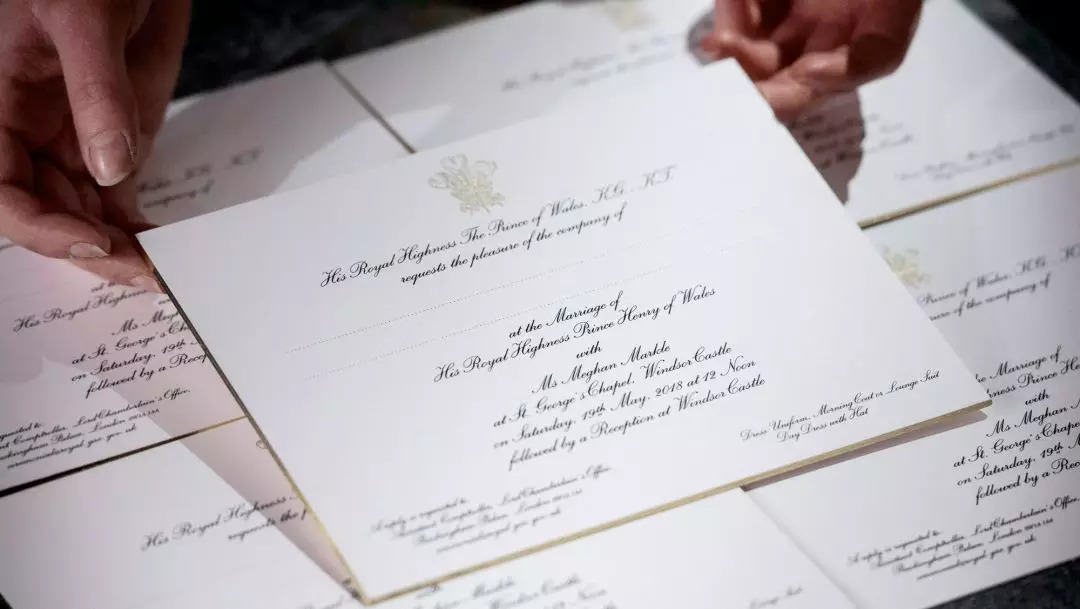 His Royal Highness The Prince of Wales. K.G., K.T.
requests the pleasure of the company of
at the Marriage of
His Royal Highness Prince Henry of Wales
with
Ms Meghan Markle
at St. George's Chapel, Windsor Castle
on Saturday, 19th May, 2018 at 12 Noon
followed by a Reception at Windsor Castle
A reply is requested to
Assistant Comptroller, Lord Chamberlain's Office,
Buckingham Palace, London SW1A 1AA
Dress: Uniform, Morning Coat or Lounge Suit
Day Dress with Hat
His Royal Highness
Ms Megh
at St. George's Cha
on Saturday, 19th
followed by a Rec
Lord Chamberlain's Office,
Buckingham Palace, London SW1A 1AA
His Royal Highness
requests the
Markle
Windsor Castle
Lounge Suit
Prince of Wales. K.G.,
sure of the company of
Marriage of
Highness Prince He
with
Ms Meghan
at St. George's Ch
on Saturday, 19th
followed by a Rece
A reply is requested to
Assistant Comptroller, Lord Chamberlain's Office,
Buckingham Palace, London SW1A 1AA